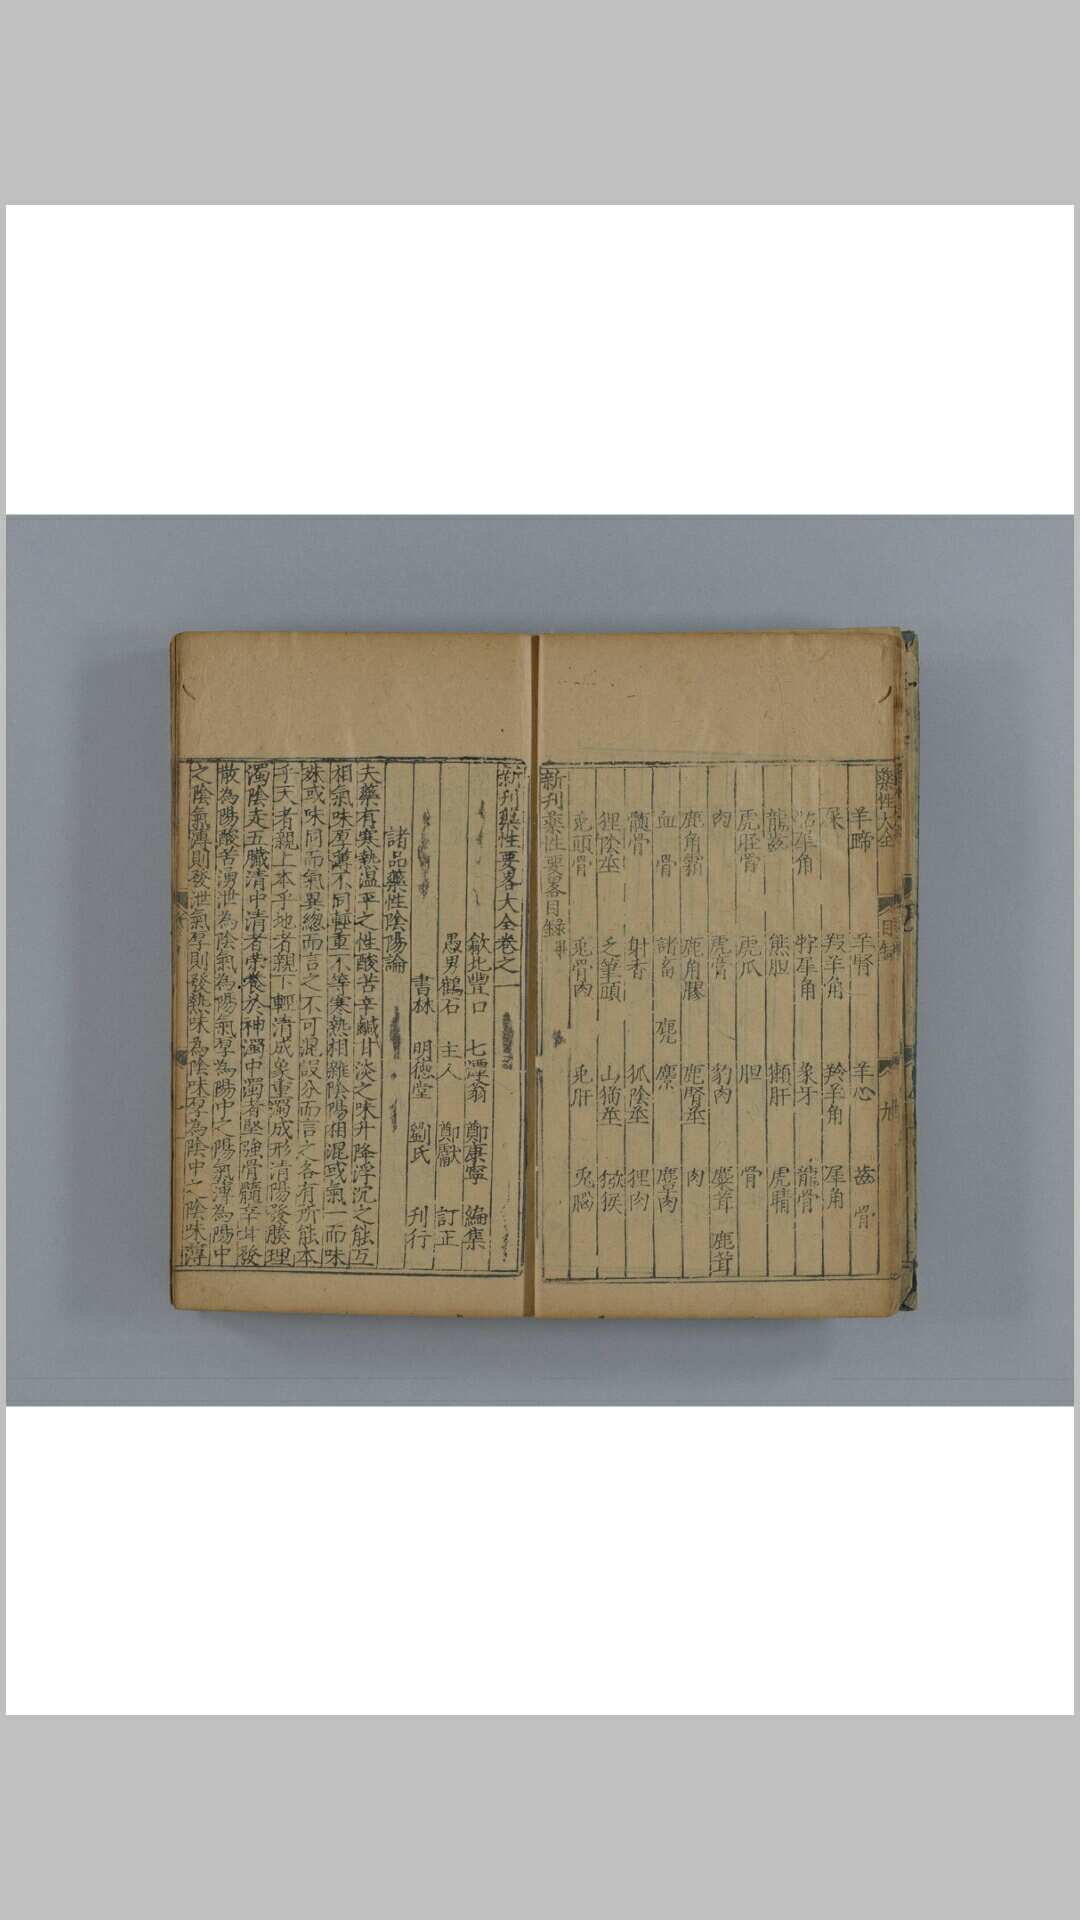 藥性大全 目錄
羊蹄 羊腎 羊心 齒 骨
屎 羖羊角 羚羊角 犀角
牸犀角 象牙 龍骨
龍齒 熊胆 獺肝 虎睛
虎脛骨 虎爪 胆 骨
肉 虎膏 豹肉 麋茸 鹿茸
鹿角霜 鹿角膠 鹿腎莖 肉
血 骨 諸畜 麂 麖 麞肉
髓骨 射香 狐陰莖 狸肉
狸陰莖 乏筆頭 山猫莖 猕猴
兎頭骨 兎骨肉 兎肝 兎腦
新刊藥性要畧目錄畢
新刊藥性要畧大全卷之一
歙北豐口 七潭翁 鄭康寧 編集
愚男鶴石 主人 鄭獻 訂正
書林 明德堂 劉氏 刊行
諸品藥性陰陽論
夫藥有寒熱温平之性酸苦辛鹹甘淡之味升降浮沉之能互
相氣味厚薄不同輕重不等寒熱相雜陰陽相混或氣一而味
殊或味同而氣異緫而言之不可混設分而言之各有所能本
乎天者親上本乎地者親下輕清成象重濁成形清陽發腠理
濁陰走五臟清中清者榮養於神濁中濁者堅強骨髓辛甘發
散為陽酸苦湧泄為陰氣為陽氣厚為陽中之陽氣薄為陽中
之陰氣薄則發泄氣厚則發熱味為陰味厚為陰中之陰味薄